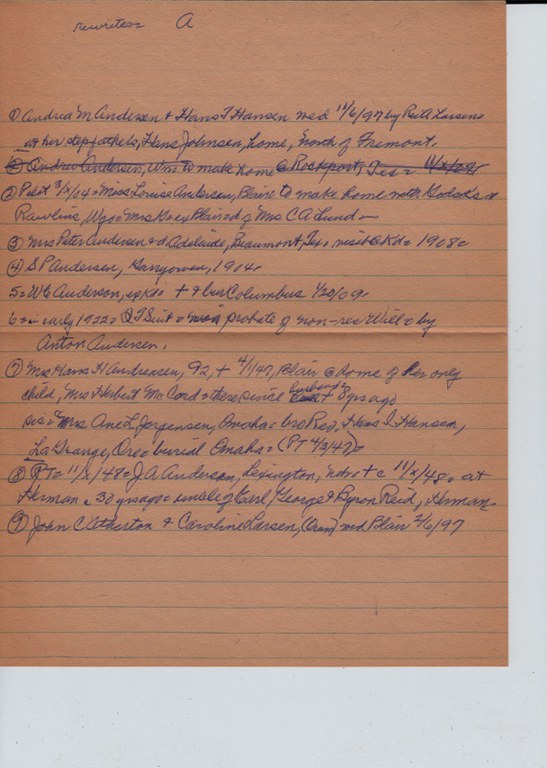 rewrites= A
① Andrea M Andersen + Hans T Hansen wed 11/6/97 by Rev A Larsen
at her stepfathers, Hans Johnsen, home, north of Fremont.
② Andrew Andersen, Wm to make home @ Rockport, Tex= 11/x/09
② P&at 9/x/14= Miss Louise Andersen, Blair to make home with
Rawlins, Wyo= Mrs G= ex Blair= d of Mrs C A Lund—
③ Mrs Peter Andersen + d, Adelaide, Beaumont, Tex. visit @ Kd= 1908=
④ S P Andersen, Garryowen, 1904.
5= W C Anderson, ex Kd= + @ Columbus 1/20/09.
6= early 1922= Q T Suit = probate of non-res Will= by
Anton Andersen.
⑦ Mrs Hans H Andreasen, 92, + 4/1/47, Blair @ home of her only
child, Mrs Herbert Mc Cord= there since husbands + 8 yrs ago
sis= Mrs Ane L Jorgensen, Omaha= bro Rev, Hans I Hansen,
La Grange, Ore= burial Omaha= (PT 4/3/47)=
⑧ PT= 11/x/48= J A Andersen, Lexington, Nebr + c 11/x/48= at
Herman c 30 yrs ago= uncle of Earl, George & Byron Reid, Herman—
⑨ John C Atherton & Caroline Larsen, (Oram) wed Blair 2/6/97